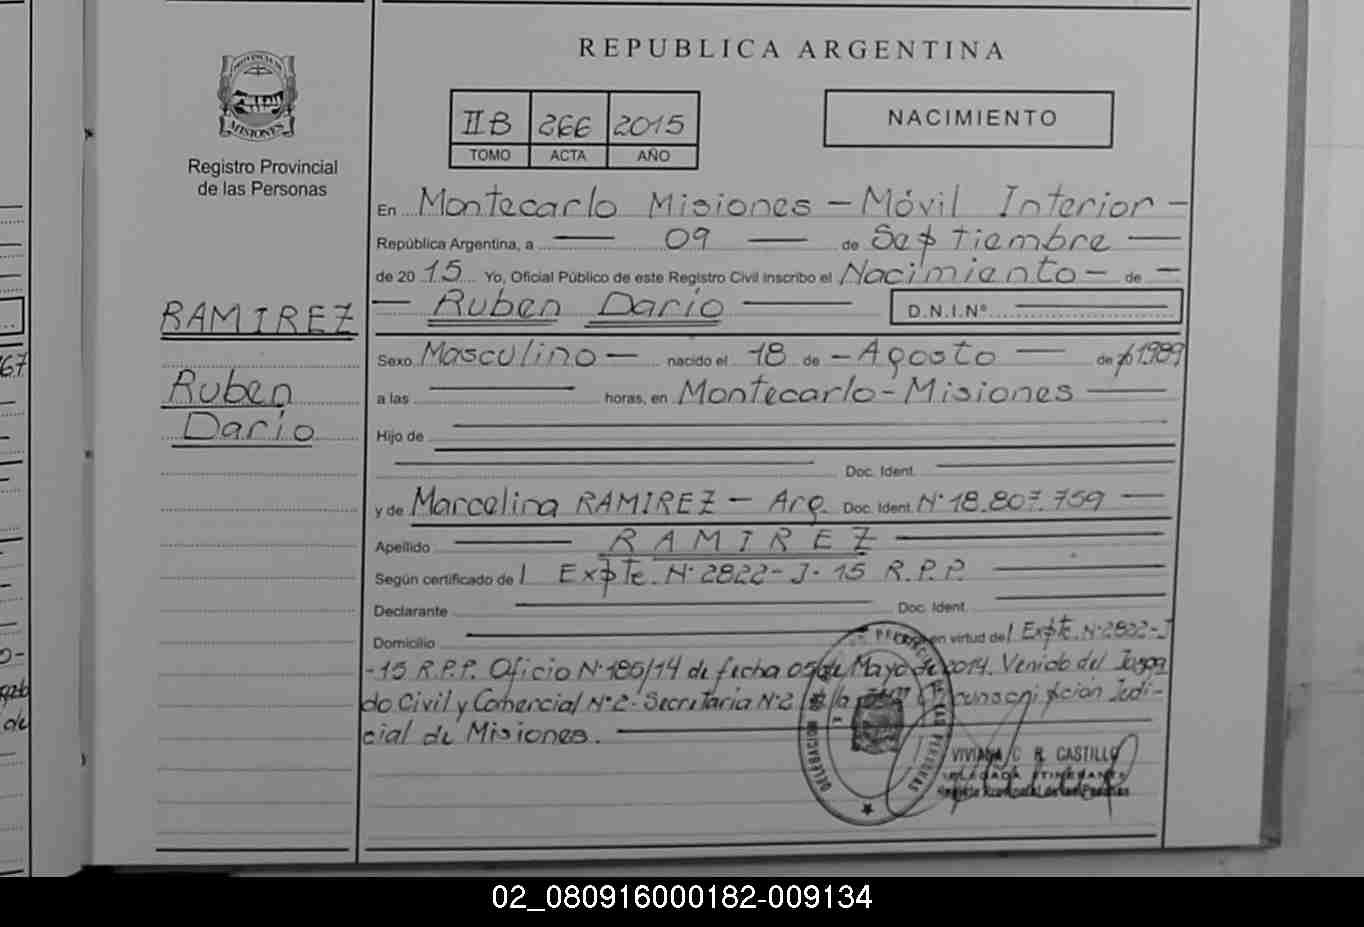 REPUBLICA ARGENTINA
PROVINCIA DE
MISIONES
Registro Provincial
de las Personas
II B 266 2015
TOMO ACTA AÑO
NACIMIENTO
En Montecarlo Misiones - Móvil Interior -
República Argentina, a 09 de Septiembre
de 2015 Yo, Oficial Público de este Registro Civil inscribo el Nacimiento - de -
Ruben Dario D.N.I.Nº
RAMIREZ
Ruben
Dario
Sexo Masculino - nacido el 18 de - Agosto de 1989
a las horas, en Montecarlo - Misiones
Hijo de
Doc. Ident.
y de Marcelina RAMIREZ - Arg. Doc. Ident. Nº 18.807.759
Apellido RAMIREZ
Según certificado de / Expte. Nº 2822-J-15 R.P.P.
Declarante Doc. Ident.
Domicilio en virtud de / Expte. Nº 2822-J
-15 R.P.P. Oficio Nº 185/14 de fecha 05 de Mayo de 2014. Venido del Juzga
do Civil y Comercial Nº 2 - Secretaria Nº 2 de la Circunscripción Judi-
cial de Misiones.
DELEGACION DE LAS PERSONAS
VIVIANA C. R. CASTILLO
DELEGADA ITINERANTE
Registro Provincial de las Personas
67
o-
de
02_080916000182-009134